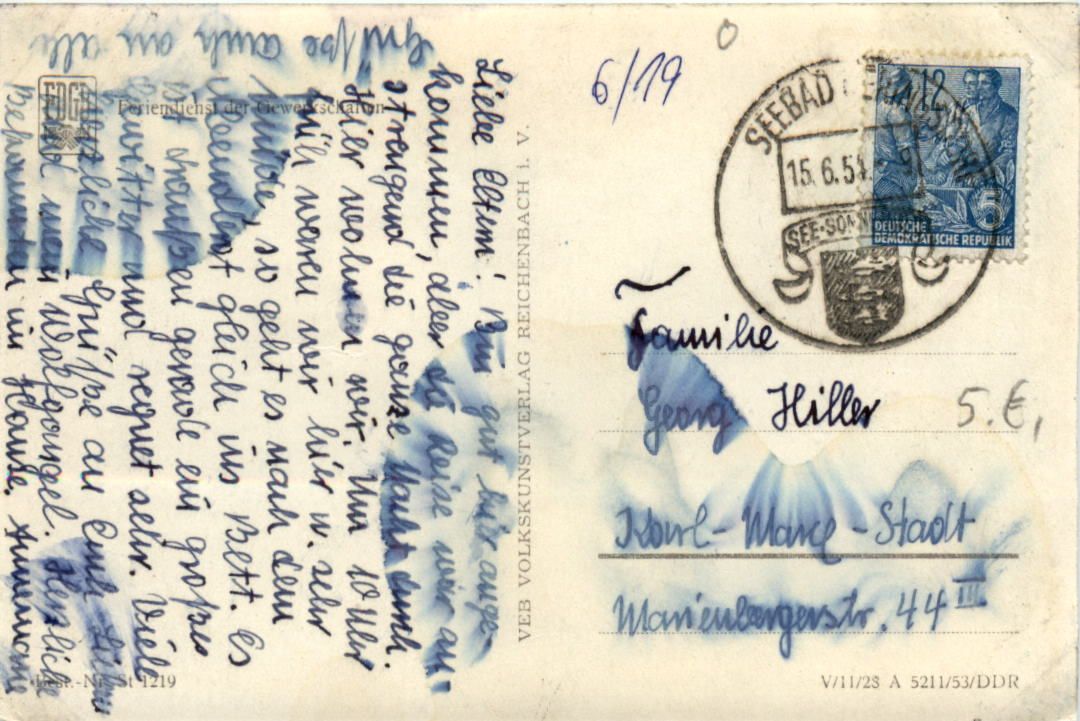 Liebe Eltern! Bin gut hier ange-
kommen, aber die Reise war an-
strengend die ganze Nacht durch.
Hier wohnen wir. Um 10 Uhr
früh waren wir hier u. sehr
müde, so geht es nach dem
Abendbrot gleich ins Bett. Es
ist draußen gerade ein großes
Gewitter und regnet sehr. Viele
herzliche Grüße an Euch Lieben
und mein Wolfgangel. Herzliche
Grüße auch an alle
Bekannten im Hause. Annemarie
FDGB
Feriendienst der Gewerkschaften
Best.-Nr. St 1219
VEB VOLKSKUNSTVERLAG REICHENBACH i. V.
6/19
SEEBAD
15.6.54.-9
SEE-SONNE
12
5
DEUTSCHE
DEMOKRATISCHE REPUBLIK
Familie
Georg Hiller
5.€,
Karl-Marx-Stadt
Marienbergerstr. 44 III
V/11/28 A 5211/53/DDR